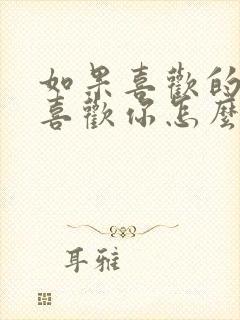 如果喜歡的
喜歡你怎麼
耳雅